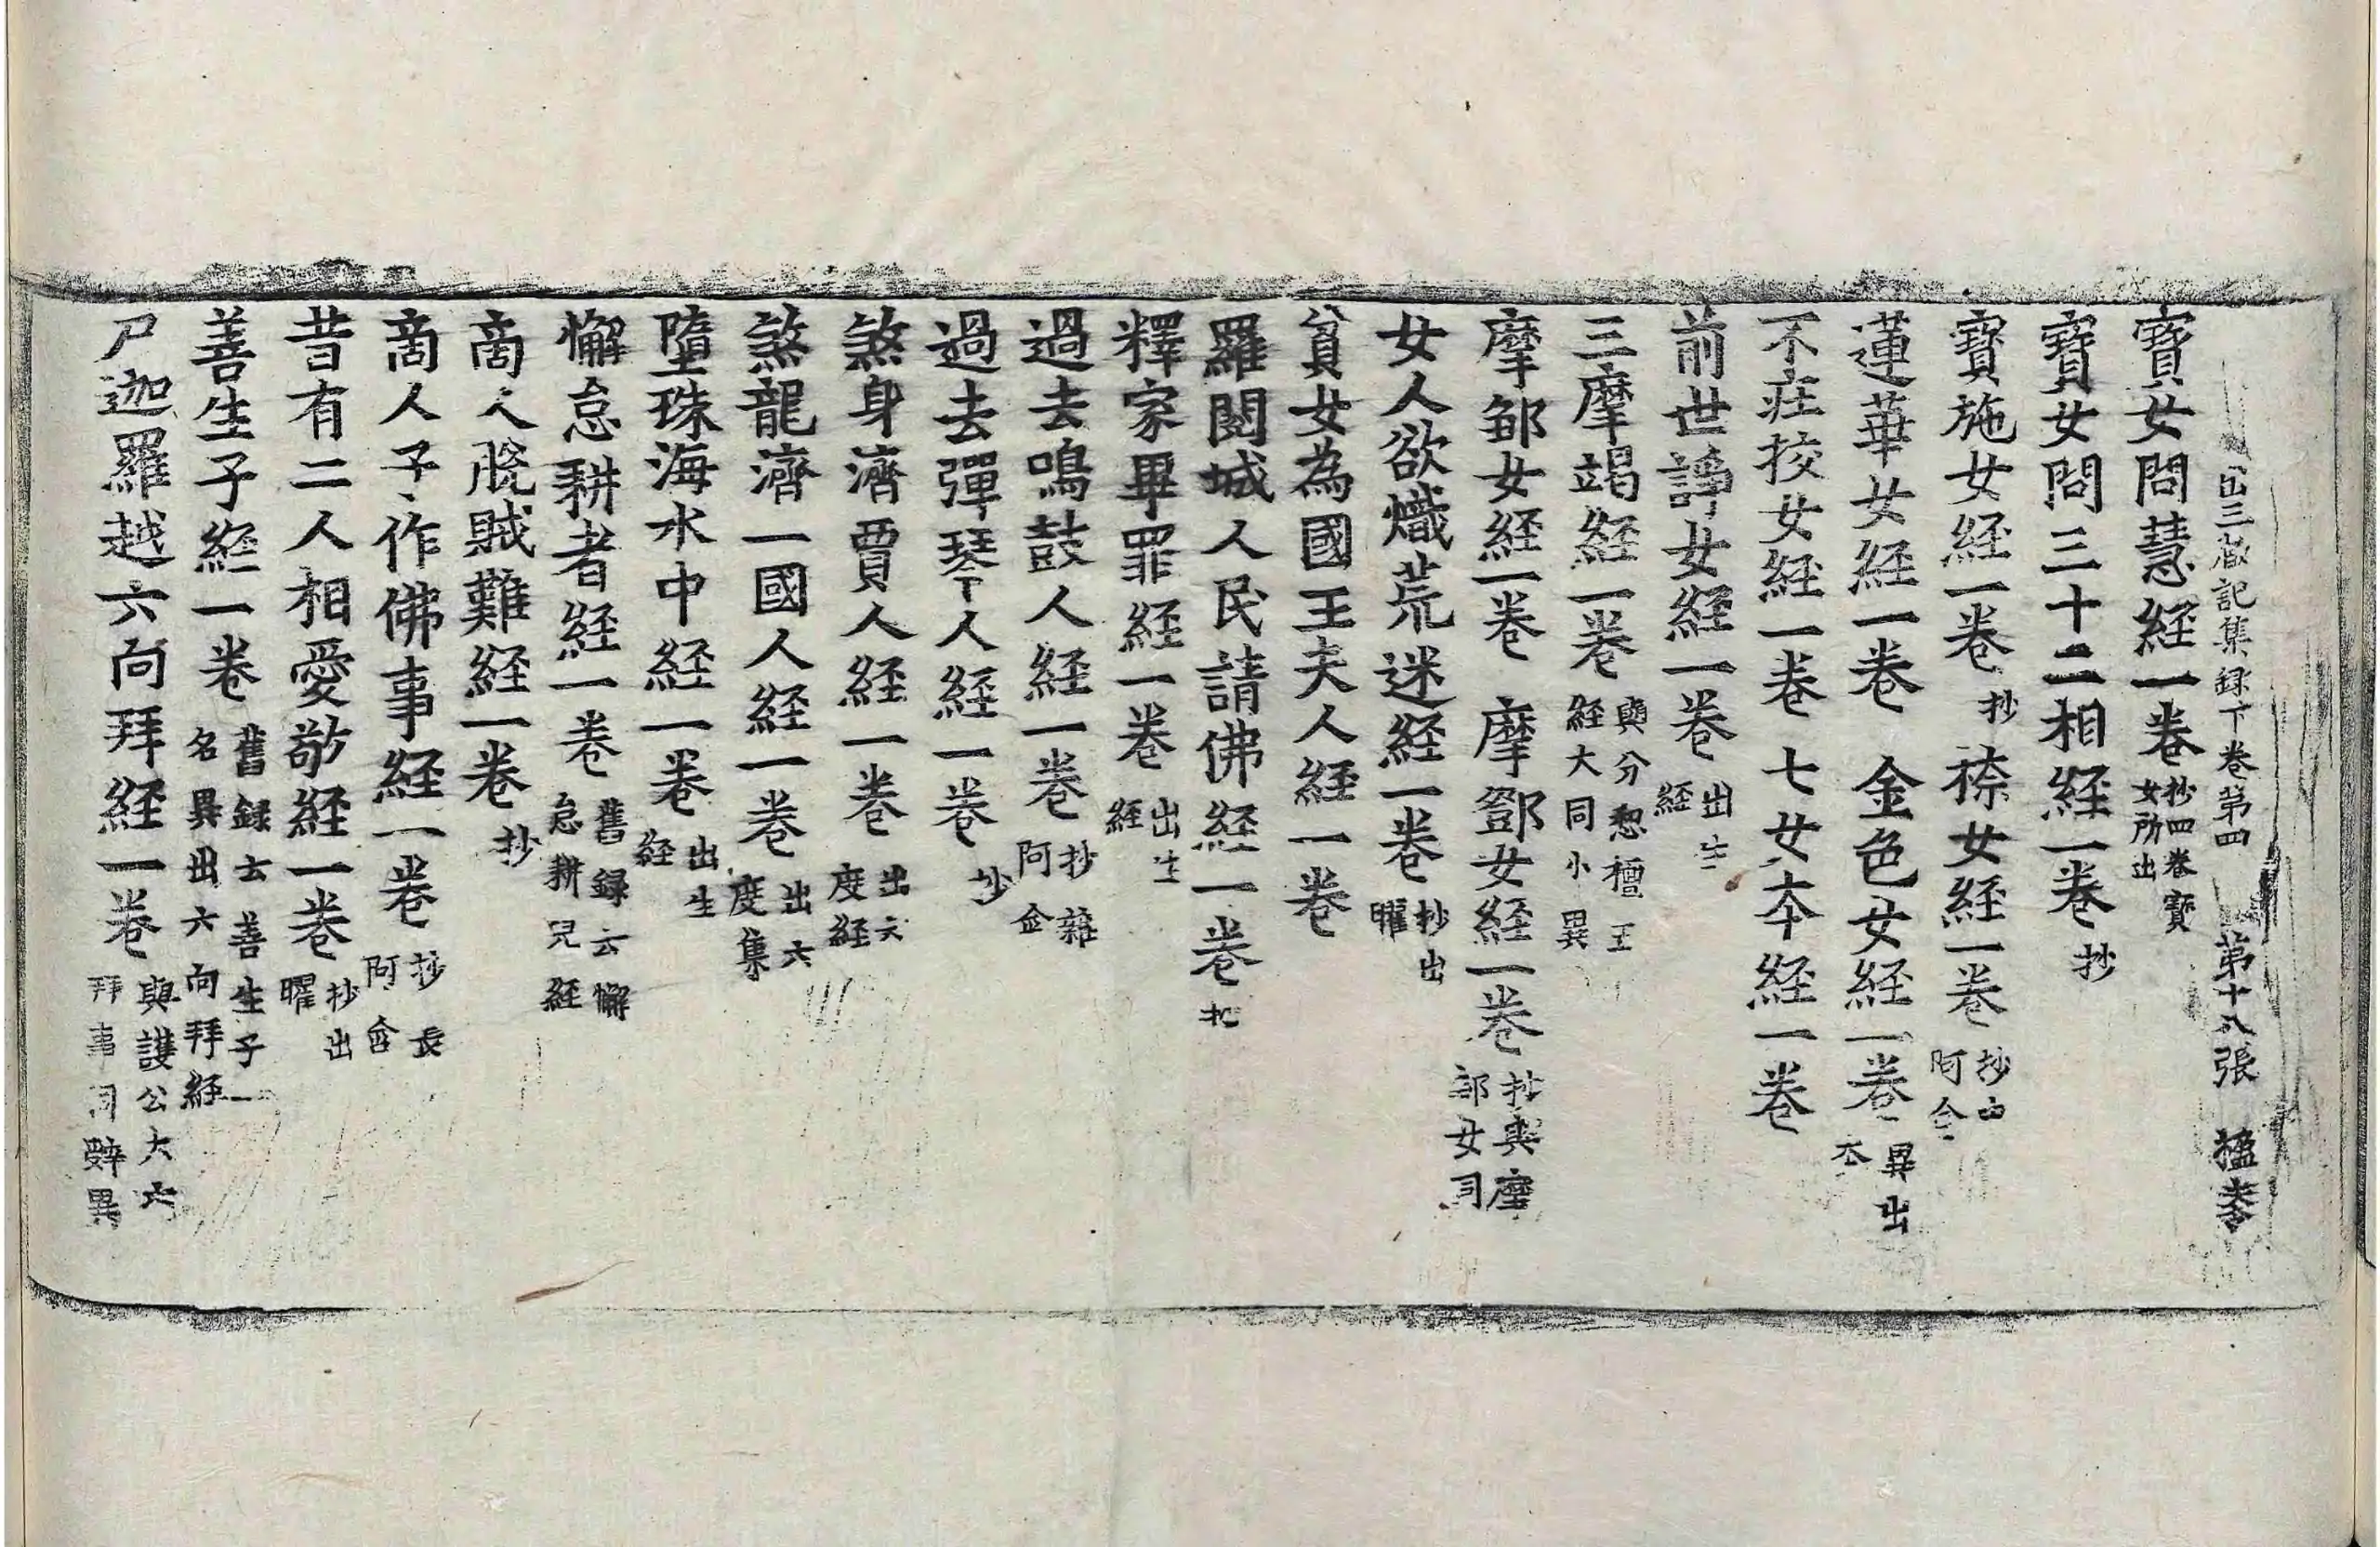 出三蔵記集録下卷第四 第十八張 楹
寳女問慧経一卷 抄四卷寳女所出
寳女問三十二相経一卷 抄
寳施女経一卷 抄 㮈女経一卷 抄 阿含
蓮華女経一卷 金色女経一卷 異出本
不庄挍女経一卷 七女本経一卷
前世諍女経一卷 出生経
三摩竭経一卷 與分惒檀王経大同小異
摩鄒女経一卷 摩鄧女経一卷 抄與摩鄒女同
女人欲熾荒迷経一卷 抄出曜
貧女為國王夫人経一卷
羅閱城人民請佛経一卷 抄
釋家畢罪経一卷 出生経
過去鳴鼓人経一卷 抄雜阿含
過去彈琴人経一卷 抄
煞身濟賈人経一卷 出六度経
煞龍濟一國人経一卷 出六度集
墮珠海水中経一卷 出生経
懈怠耕者経一卷 舊録云懈怠耕兒経
商人脫賊難経一卷 抄
商人子作佛事経一卷 抄長阿含
昔有二人相愛敬経一卷 抄出曜
善生子経一卷 舊録云善生子一名異出六向拜経
尸迦羅越六向拜経一卷 與護公大六拜事同辞異